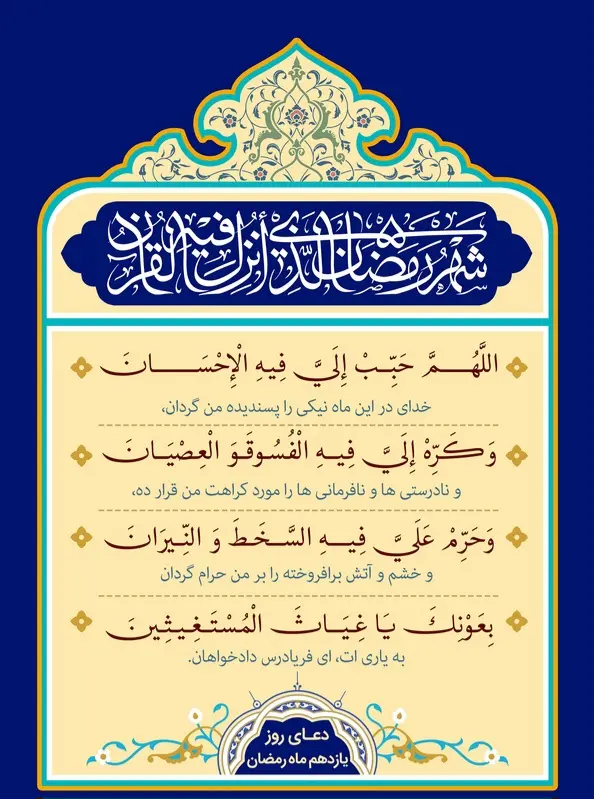 شَهْرُ رَمَضَانَ الَّذِي أُنْزِلَ فِيهِ الْقُرْآنُ
اللَّهُمَّ حَبِّبْ إِلَيَّ فِيهِ الْإِحْسَانَ
خدای در این ماه نیکی را پسندیده من گردان،
وَكَرِّهْ إِلَيَّ فِيهِ الْفُسُوقَوَ الْعِصْيَانَ
و نادرستی ها و نافرمانی ها را مورد کراهت من قرار ده،
وَحَرِّمْ عَلَيَّ فِيهِ السَّخَطَ وَ النِّيرَانَ
و خشم و آتش برافروخته را بر من حرام گردان
بِعَوْنِكَ يَا غِيَاثَ الْمُسْتَغِيثِينَ
به یاری ات، ای فریادرس دادخواهان.
دعـای روز
یازدهم ماه رمضان